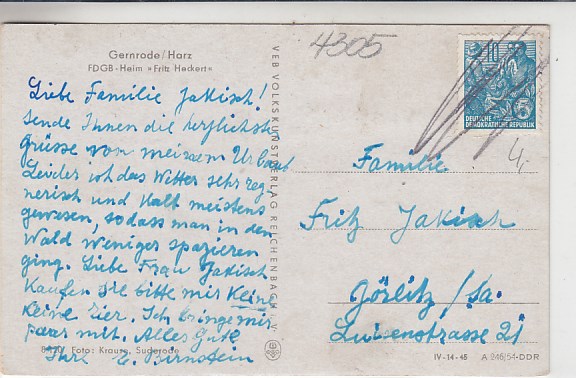 Gernrode/Harz
FDGB-Heim »Fritz Heckert«
Liebe Familie Jakisch!
sende Ihnen die herzlichste
Grüsse von meinem Urlaub
Leider ist das Witter sehr reg-
nerisch und kalt meistens
gewesen, sodass man in den
Wald weniger spazieren
ging. Liebe Frau Jakisch
Kaufen Sie bitte mir Keine
Keine Eier. Ich bringe mir
paar mit. Alles Gute
Ihre E. Birnstein
Foto: Krause, Suderode
VEB VOLKSKUNSTVERLAG REICHENBACH i. V.
4305
10
5
DEUTSCHE
DEMOKRATISCHE REPUBLIK
4,-
Familie
Fritz Jakisch
Görlitz/Sa.
Luisenstrasse 21
IV-14-45 A 946/54-DDR